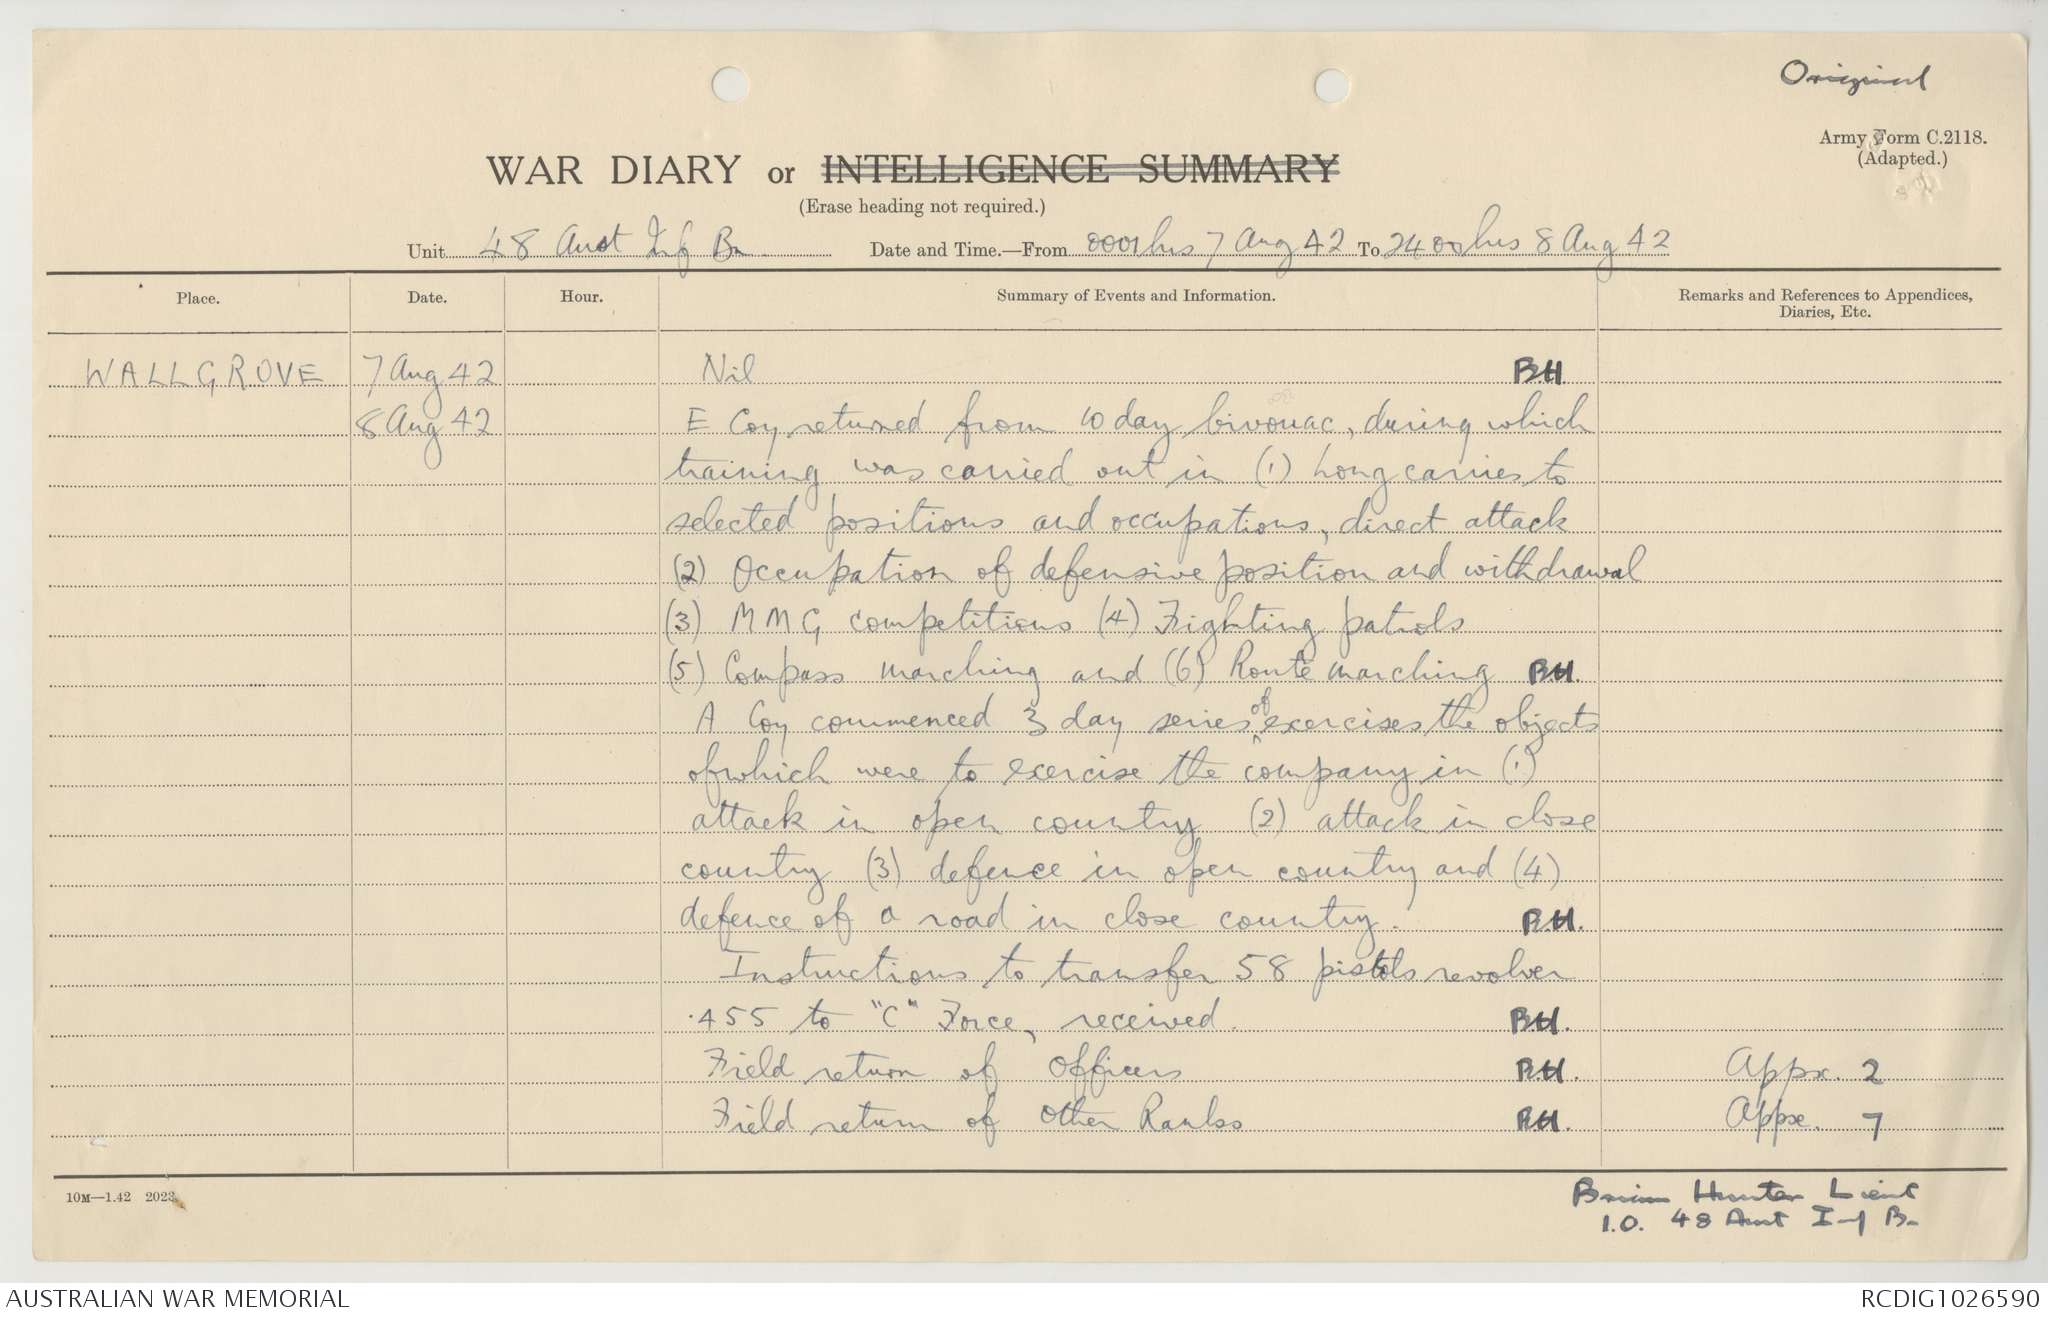 Original
Army Form C.2118.
(Adapted.)
WAR DIARY or INTELLIGENCE SUMMARY
(Erase heading not required.)
Unit 48 Aust Inf Bn Date and Time.—From 0001hrs 7 Aug 42 To 2400hrs 8 Aug 42
Place. Date. Hour. Summary of Events and Information. Remarks and References to Appendices, Diaries, Etc.
WALLGROVE 7 Aug 42 Nil BH
8 Aug 42 E Coy returned from 10 day bivouac, during which
training was carried out in (1) Long carries to
selected positions and occupations, direct attack
(2) Occupation of defensive position and withdrawal
(3) MMG competitions (4) Fighting patrols
(5) Compass marching and (6) Route marching BH.
A Coy commenced 3 day series of exercises the objects
of which were to exercise the company in (1)
attack in open country (2) attack in close
country (3) defence in open country and (4)
defence of a road in close country. BH.
Instructions to transfer 58 pistols revolver
.455 to "C" Force, received. BH.
Field return of Officers BH. Appx. 2
Field return of Other Ranks BH. Appx. 7
10M—1.42 2023
Brian Hunter Lieut
I.O. 48 Aust Inf Bn
AUSTRALIAN WAR MEMORIAL RCDIG1026590